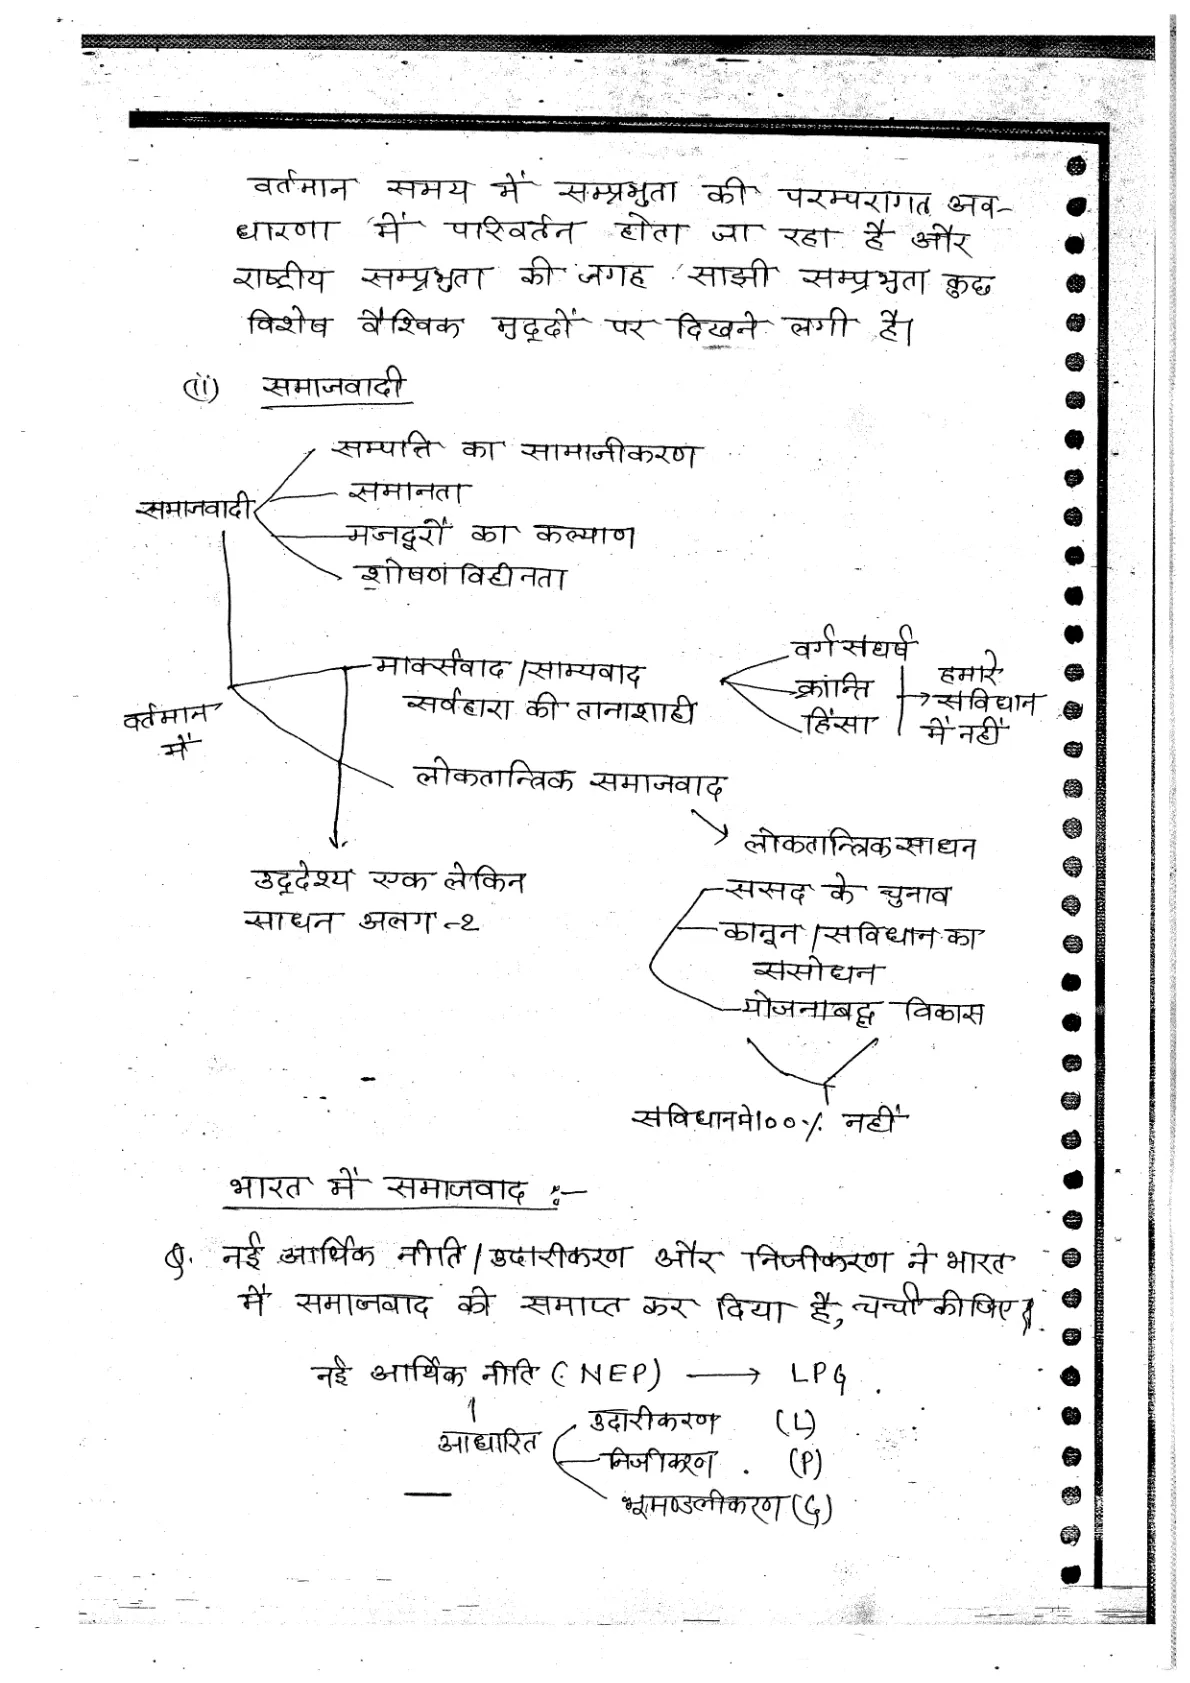 वर्तमान समय में सम्प्रभुता की परम्परागत अव-
धारणा में परिवर्तन होता जा रहा है और
राष्ट्रीय सम्प्रभुता की जगह साझी सम्प्रभुता कुछ
विशेष वैश्विक मुद्दों पर दिखने लगी है।
(ii) समाजवादी
सम्पत्ति का सामाजीकरण
समानता
समाजवादी
मजदूरों का कल्याण
शोषण विहीनता
वर्ग संघर्ष
मार्क्सवाद/साम्यवाद
क्रांन्ति
हमारे
सर्वहारा की तानाशाही
हिंसा
संविधान
में नहीं
वर्तमान
में
लोकतान्त्रिक समाजवाद
लोकतान्त्रिक साधन
उद्देश्य एक लेकिन
संसद के चुनाव
साधन अलग-२
कानून/संविधान का
संसोधन
योजनाबद्ध विकास
संविधान मे 100% नहीं
भारत में समाजवाद :-
Q. नई आर्थिक नीति/उदारीकरण और निजीकरण ने भारत
में समाजवाद को समाप्त कर दिया है, चर्चा कीजिए।
नई आर्थिक नीति (NEP) → LPG
आधारित
उदारीकरण (L)
निजीकरण (P)
भूमण्डलीकरण (G)